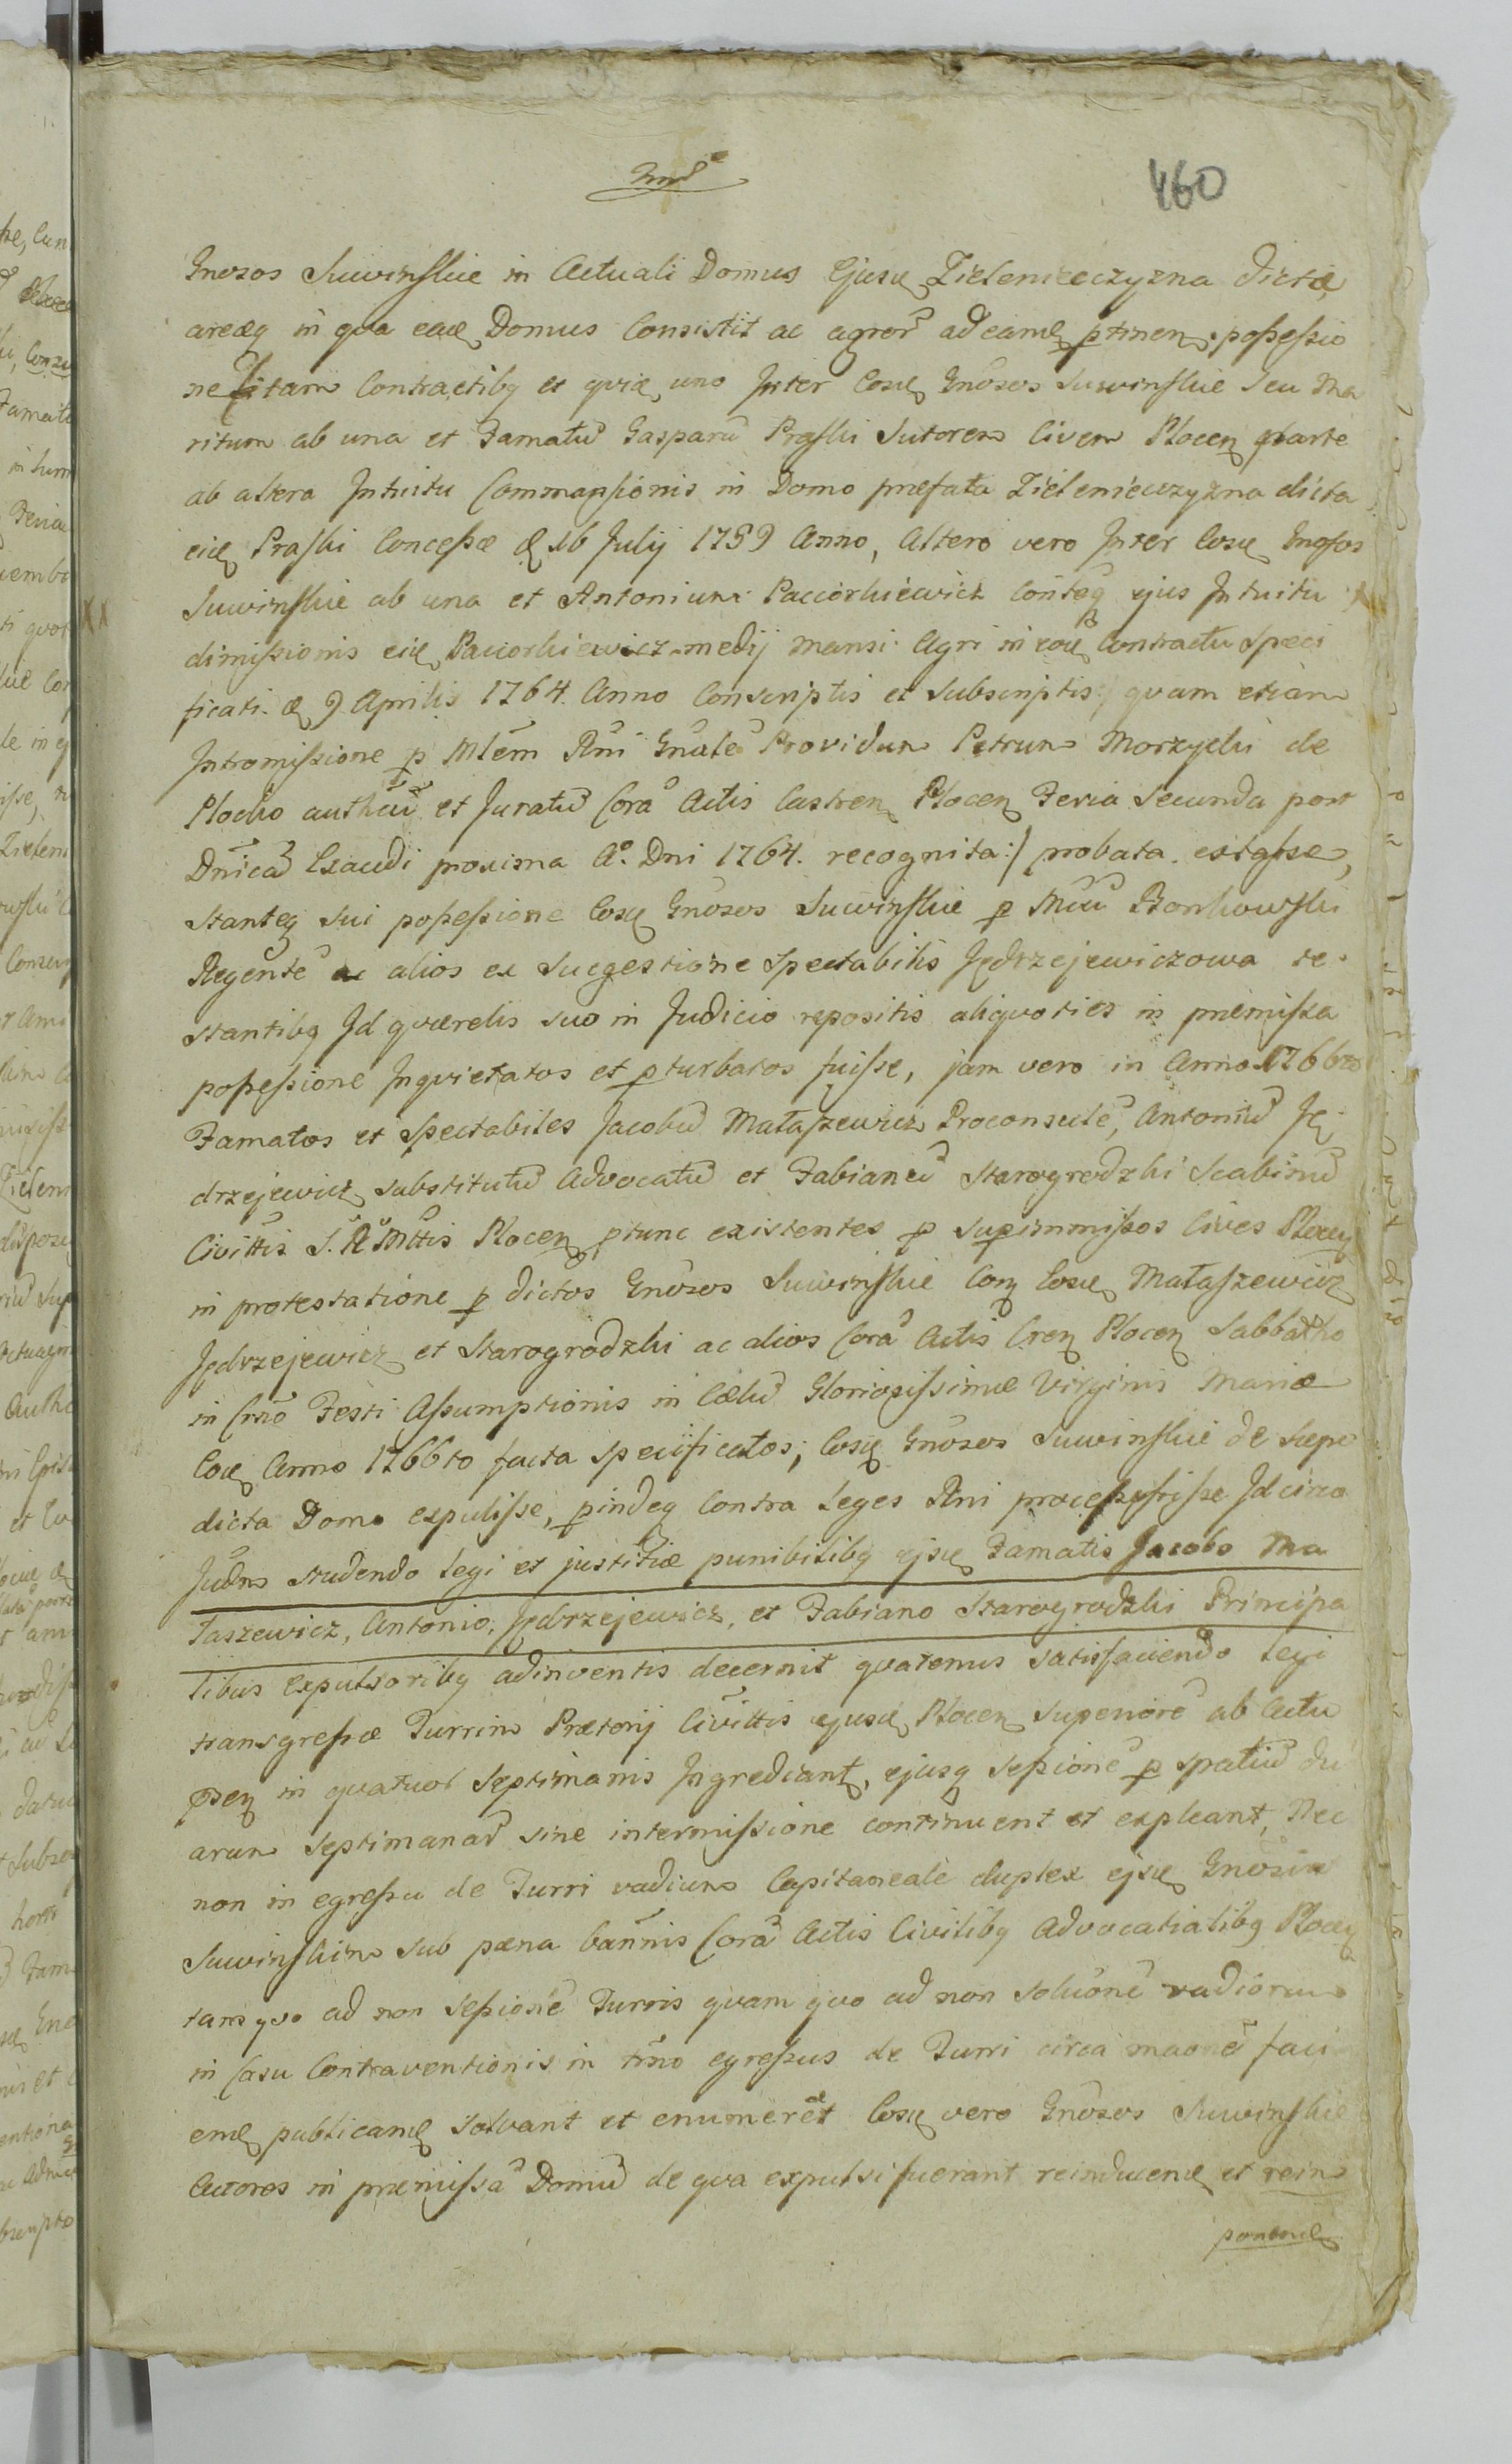 460
Gnosos Suwinskie in Actuali Domus Ejusd Zieleniecczyzna dictæ
areæq in qva ead Domus Consistit ac agror ad eamd ptinen possessio
ne tam Contractibq et qvid uno Inter Eosd Gnosos Suwinskie seu Ma
ritum ab una et Famatu Gasparu Praski Sutorem Civem Plocen parte
ab altera Intuitu Commansionis in Domo præfata Zieleniecczyzna dicta
eid Praski Concessæ d 16 Julij 1759 Anno, Altero vero Inter Eosd Gnosos
Suwinskie ab una et Antonium Paciorkiewicz Conteq ejus Intuitu
dimissionis eid Paciorkiewicz medij mansi Agri in eod Contractu Speci
ficati d 9 Aprilis 1764. Anno Conscriptis et Subscriptis:/ qvam etiam
Intromissione p Mlem Rni Gnale Providum Petrum Morzycki de
Plocko authcu et Juratu Cora Actis Castren Plocen Feria Secunda post
Dnica Exaudi proxima Ao. Dni 1764. recognita:/ probata extasse,
stanteq sui possessione Eosd Gnosos Suwinskie p Mcu Bonkowski
Regente ac alios ex Suggestione Spectabilis Jędrzejewiczowa re
stantibq Id qværelis suo in Judicio repositis aliqvoties in præmissa
possessione Inqvietatos et pturbatos fuisse, jam vero in Anno 1766to
Famatos et Spectabiles Jacobu Mataszewicz Proconsule, Antoniu Ję
drzejewicz substitutu Advocatu et Fabianu Starogrodzki Scabinu
Civittis S. R Mttis Plocen ptunc existentes p supimmissos Cives Plocen
in protestatione p dictos Gnosos Suwinskie Con Eosd Mataszewicz
Jędrzejewicz et Starogrodzki ac alios Cora Actis Cren Plocen Sabbatho
in Crno Festi Assumptionis in Cælu Gloriosissimæ Virginis Mariæ
Eod Anno 1766to facta specificatos; Eosd Gnosos Suwinskie de sæpe
dicta Domo expulisse, pindeq Contra Leges Rni processisse Idcirco
Judm studendo Legi et justitiæ punibilibq ejsd Famatis Jacobo Ma
taszewicz, Antonio, Jędrzejewicz, et Fabiano Starogrodzki Principa
libus Expulsoribq adinventis decernit qvatenus satisfaciendo Legi
transgressæ Turrim Prætorij Civittis ejusd Plocen Superiore ab Actu
psen in qvatuor Septimanis Ingrediant, ejusq sessione p spatiu du
arum Septimanar sine intermissione continuent et expleant, Nec
non in egressu de Turri vadium Capitaneale duplex ejsd Gnosis
Suwinskim sub pæna bannis Cora Actis Civilibq Advocatialibq Plocen
tam qvo ad non sessione Turris qvam qvo ad non solvone vadiorum
in Casu Contraventionis in trno egressus de Turri circa maone faci
emd publicamd solvant et enumeret Eosd vero Gnosos Suwinskie
Actores in præmissa Domu de qva expulsi fuerant reinducend et reim
ponend